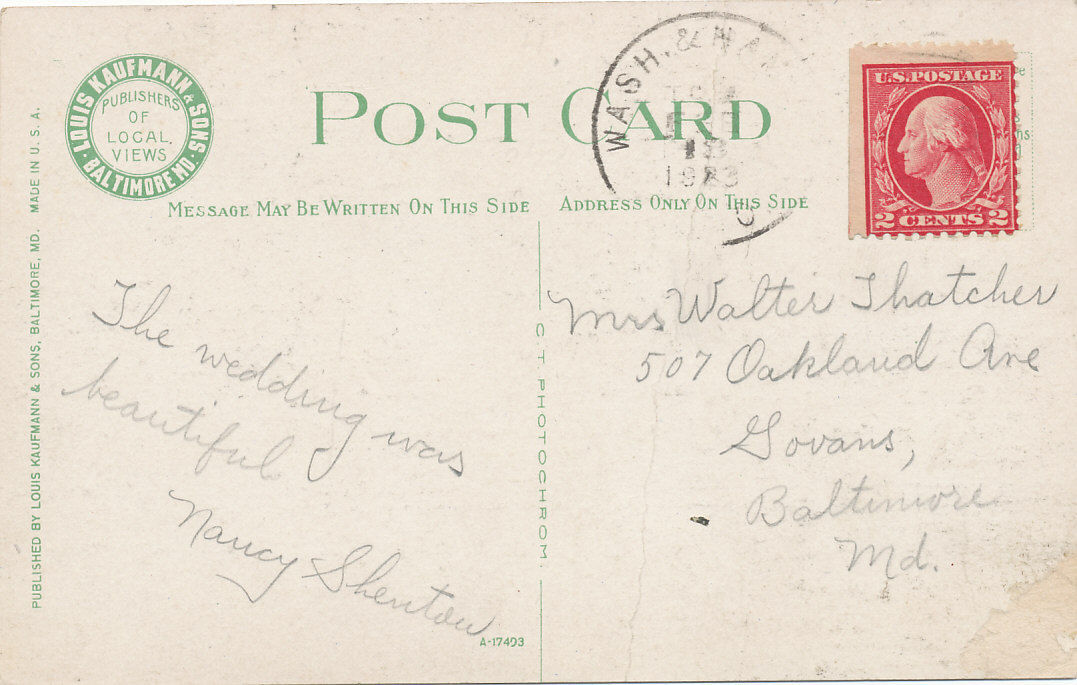 LOUIS KAUFMANN & SONS
BALTIMORE MD.
PUBLISHERS
OF
LOCAL
VIEWS
POST CARD
MESSAGE MAY BE WRITTEN ON THIS SIDE
ADDRESS ONLY ON THIS SIDE
WASH. & HA
18
1923
U.S. POSTAGE
2 CENTS 2
PUBLISHED BY LOUIS KAUFMANN & SONS, BALTIMORE, MD. MADE IN U. S. A.
C T PHOTOCHROM
The wedding was
beautiful
Nancy Shenton
A-17493
Mrs Walter Thatcher
507 Oakland Ave
Govans,
Baltimore
Md.